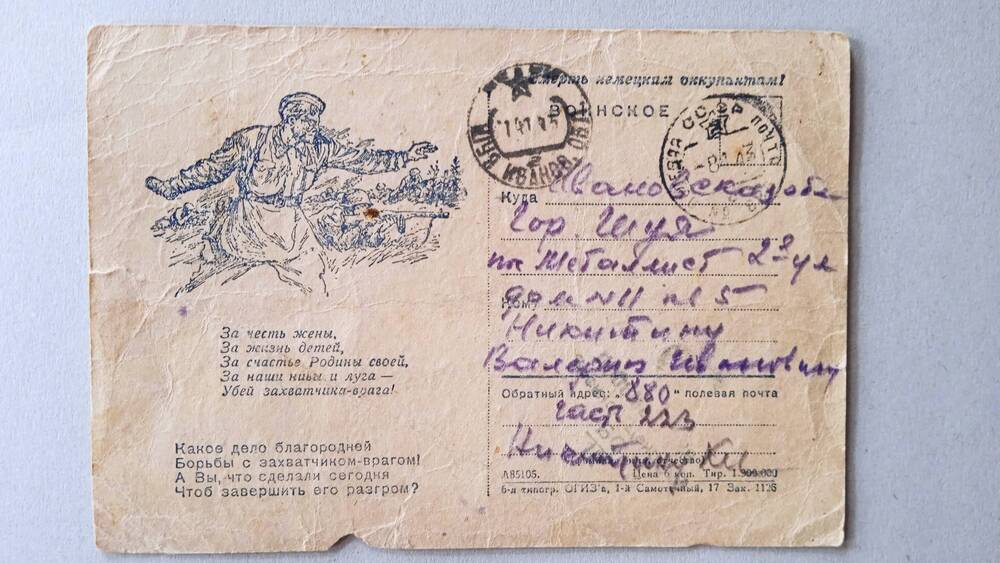 Смерть немецким оккупантам!
ВОИНСКОЕ
Куда Ивановская об
Гор. Шуя
пос Металлист 2я ул
Кому дом № 11 кв 5
Никитину
Валерию Ивановичу
Обратный адрес: „880“ полевая почта
часть 223
За честь жены,
За жизнь детей,
За счастье Родины своей,
За наши нивы и луга —
Убей захватчика-врага!
Какое дело благородней
Борьбы с захватчиком-врагом!
А Вы, что сделали сегодня
Чтоб завершить его разгром?
А85105. Цена 6 коп. Тир. 1.300.000
6-я типогр. ОГИЗ'а, 1-й Самотечный, 17 Зак. 1126